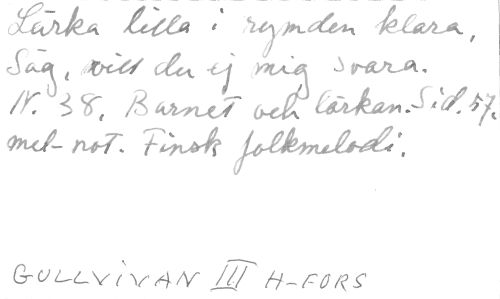 Lärka lilla i rymden klara,
Säg, vill du ej mig svara.
N. 38. Barnet och lärkan. Sid. 57.
mel-not. Finsk folkmelodi.
GULLVIVAN III H-FORS